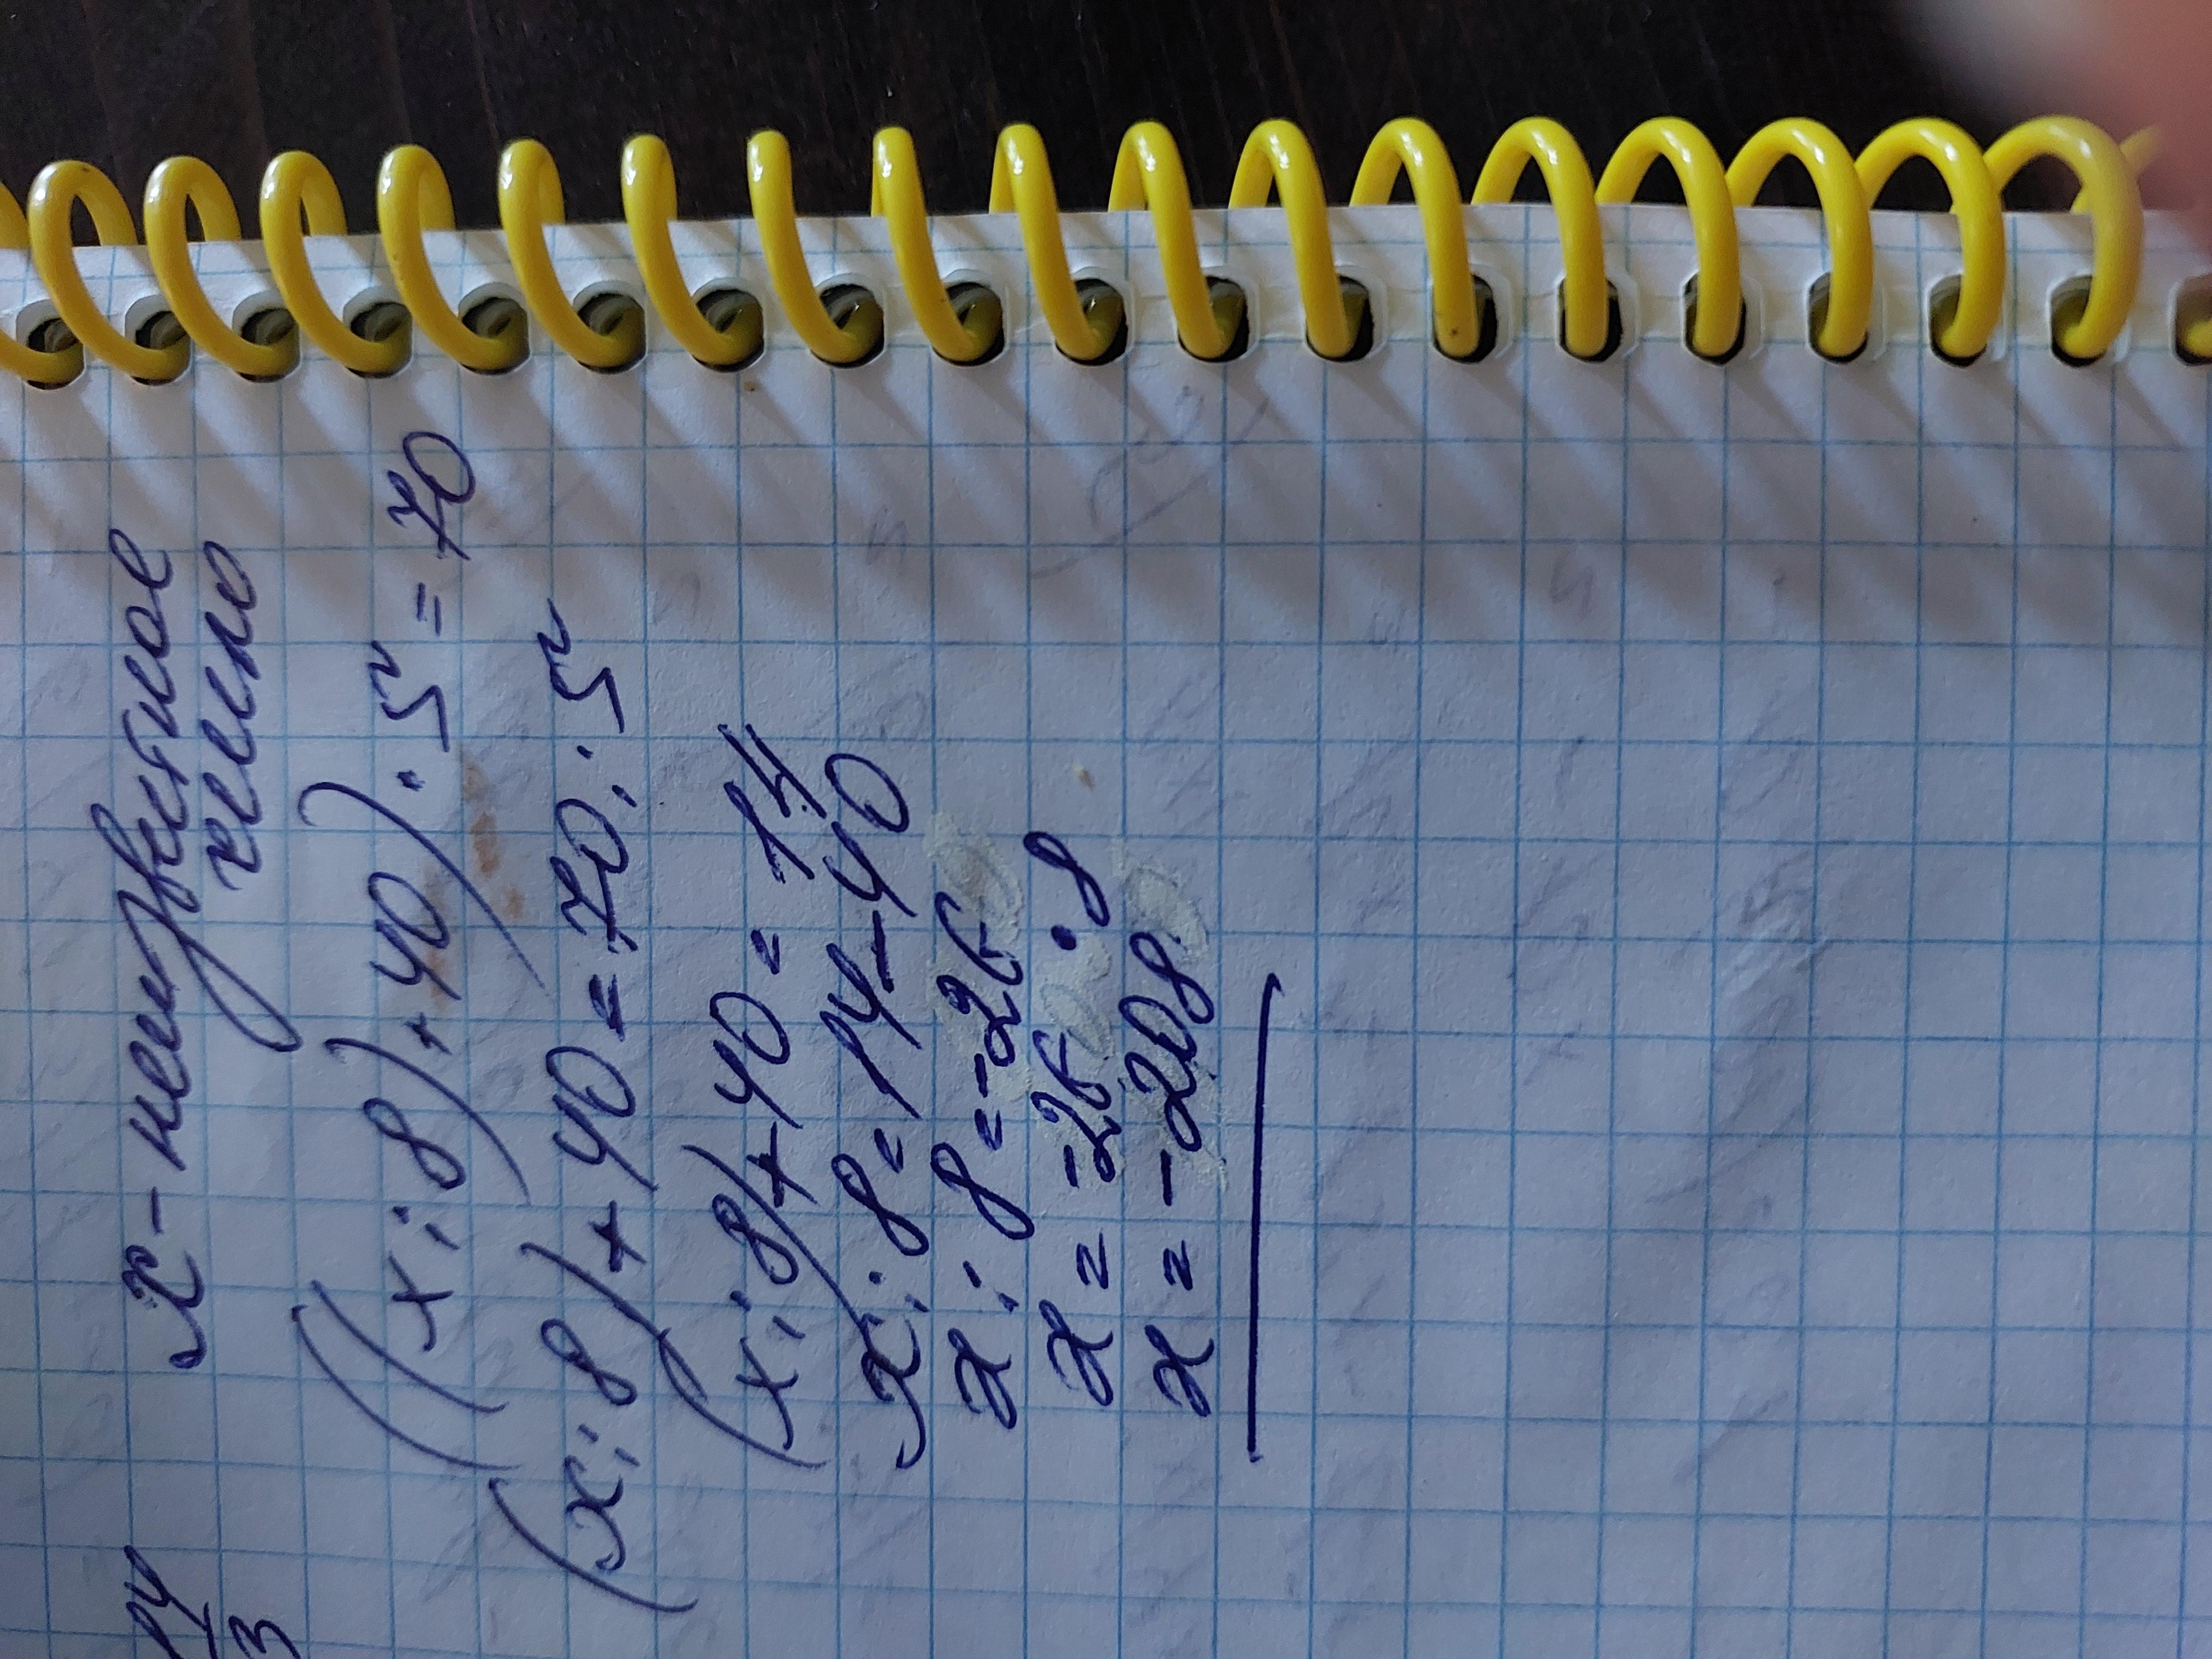 x - неизвестное
число
((x : 8) + 40) · 5 = 70
(x : 8) + 40 = 70 : 5
(x : 8) + 40 = 14
x : 8 = 14 - 40
x : 8 = -26
x = -26 · 8
x = -208
14
3